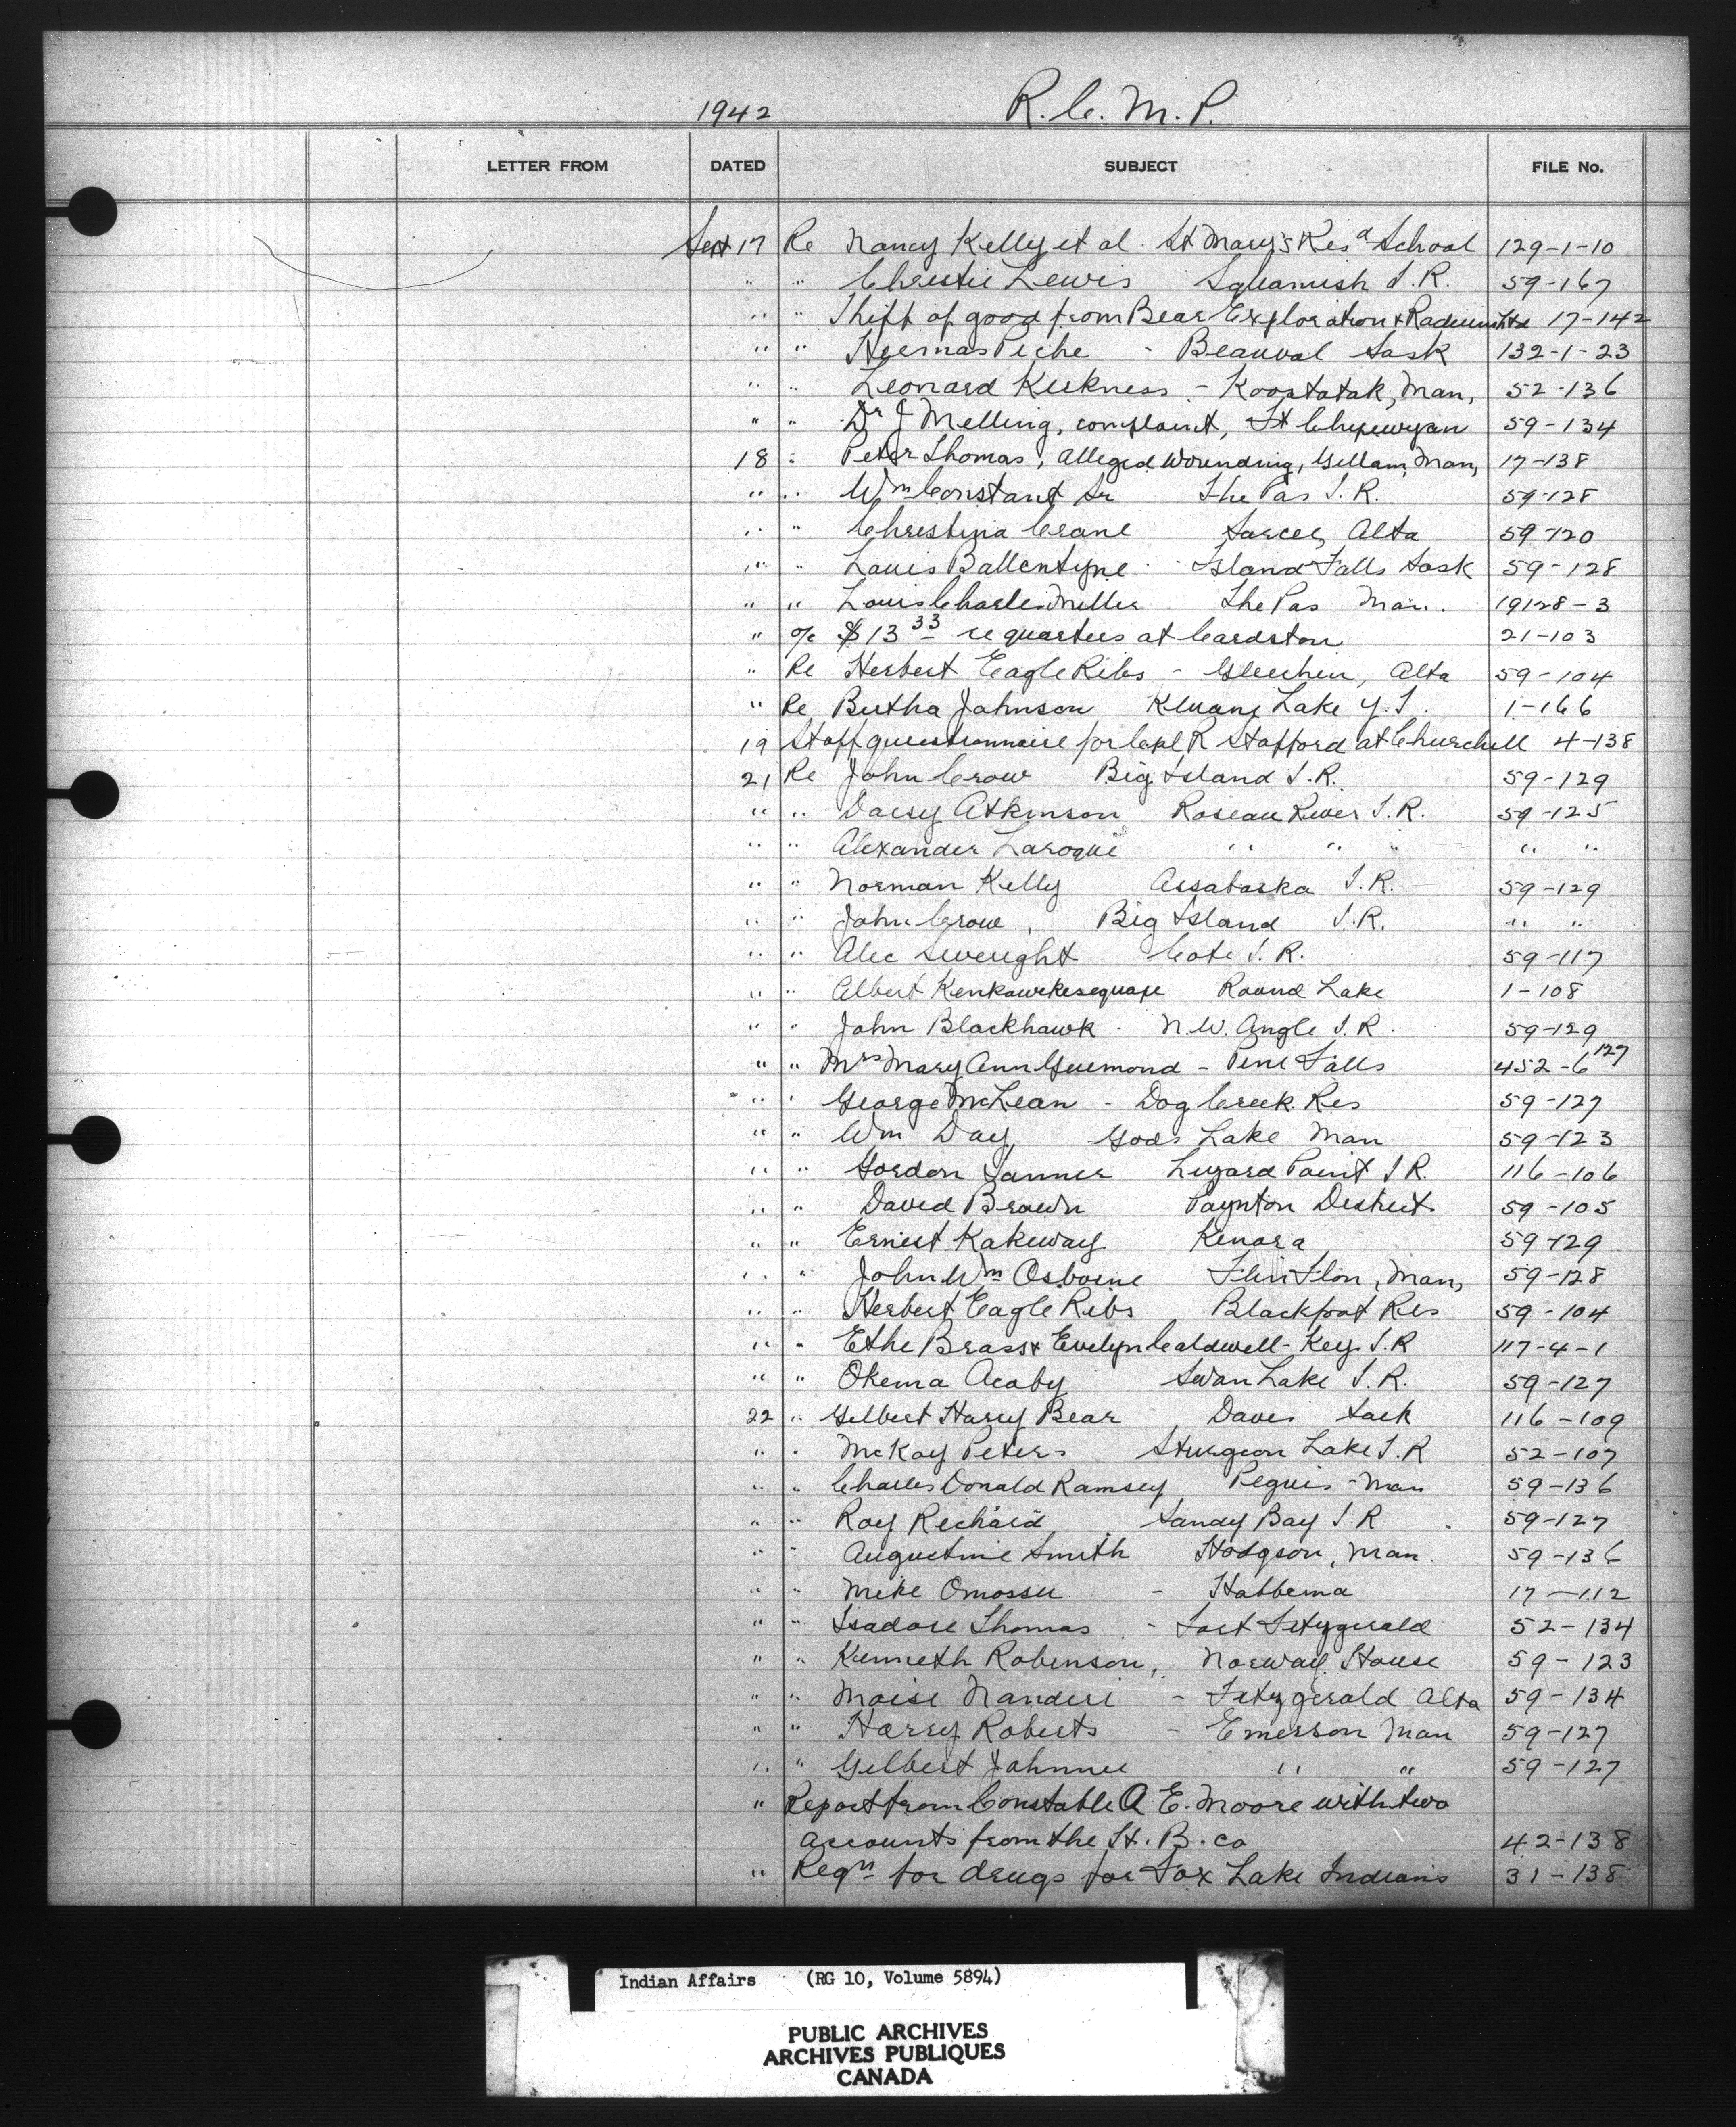 1942 R.C.M.P.
LETTER FROM DATED SUBJECT FILE No.
Sept 17 Re Nancy Kelly et al. St Mary's Res School 129-1-10
" " Christie Lewis Squamish I.R. 59-167
" " Theft of good from Bear Exploration & Radium Ltd 17-142
" " Piche - Beauval Sask 132-1-23
" " Leonard Kirkness - Koostatak, Man, 52-136
" " Dr J Melling, complaint, Ft Chipewyan 59-134
18 " Peter Thomas, Alleged Wounding, Gillam, Man, 17-138
" " Wm Constant Sr The Pas I.R. 59-128
" " Christina Crane Sarcee, Alta 59-120
" " Louis Ballentyne Island Falls Sask 59-128
" " Louis Charles Miller The Pas Man. 19128-3
" o/c $13 33 re quarters at Cardston 21-103
" Re Herbert Eagle Ribs - Gleichen, Alta 59-104
" Re Bertha Johnson Kluane Lake Y.T. 1-166
19 Staff questionnaire for Capl R Stafford at Churchill 4-138
21 Re John Crow Big Island I.R. 59-129
" " Daisy Atkinson Roseau River I.R. 59-125
" " Alexander Laroque " " " " "
" " Norman Kelly Assabaska I.R. 59-129
" " John Crow, Big Island I.R. " "
" " Alec Cote I.R. 59-117
" " Albert Round Lake 1-108
" " John Blackhawk - N.W. Angle I.R. 59-129
" " Mrs Mary Ann Guimond - Pine Falls 452-6 127
" " George McLean - Dog Creek Res 59-127
" " Wm Day Gods Lake Man 59-123
" " Gordon Tanner Lizard Point I R. 116-106
" " David Brown Paynton District 59-105
" " Ernest Kakeway Kenora 59-129
" " John Wm Osborne Flin Flon, Man, 59-128
" " Herbert Eagle Ribs Blackfoot Res 59-104
" " Ethe Brass & Evelyn Caldwell - Key I.R 117-4-1
" " Okema Acoby Swan Lake I.R. 59-127
22 " Gilbert Harry Bear, Davis Sask 116-109
" " McKay Peters Sturgeon Lake I.R 52-107
" " Charles Donald Ramsey Peguis - Man 59-136
" " Roy Richard Sandy Bay I R 59-127
" " Augustine Smith Hodgson, Man. 59-136
" " Mike - Hobbema 17-112
" " Isadore Thomas - Fort Fitzgerald 52-134
" " Kenneth Robinson, Norway House 59-123
" " Moise - Fitzgerald Alta 59-134
" " Harry Roberts - Emerson Man 59-127
" " Gilbert Johnnie " " 59-127
" Report from Constable A E. Moore with two
accounts from the H.B.Co 42-138
" Reqn for drugs for Fox Lake Indians 31-138
Indian Affairs (RG 10, Volume 5894)
PUBLIC ARCHIVES
ARCHIVES PUBLIQUES
CANADA